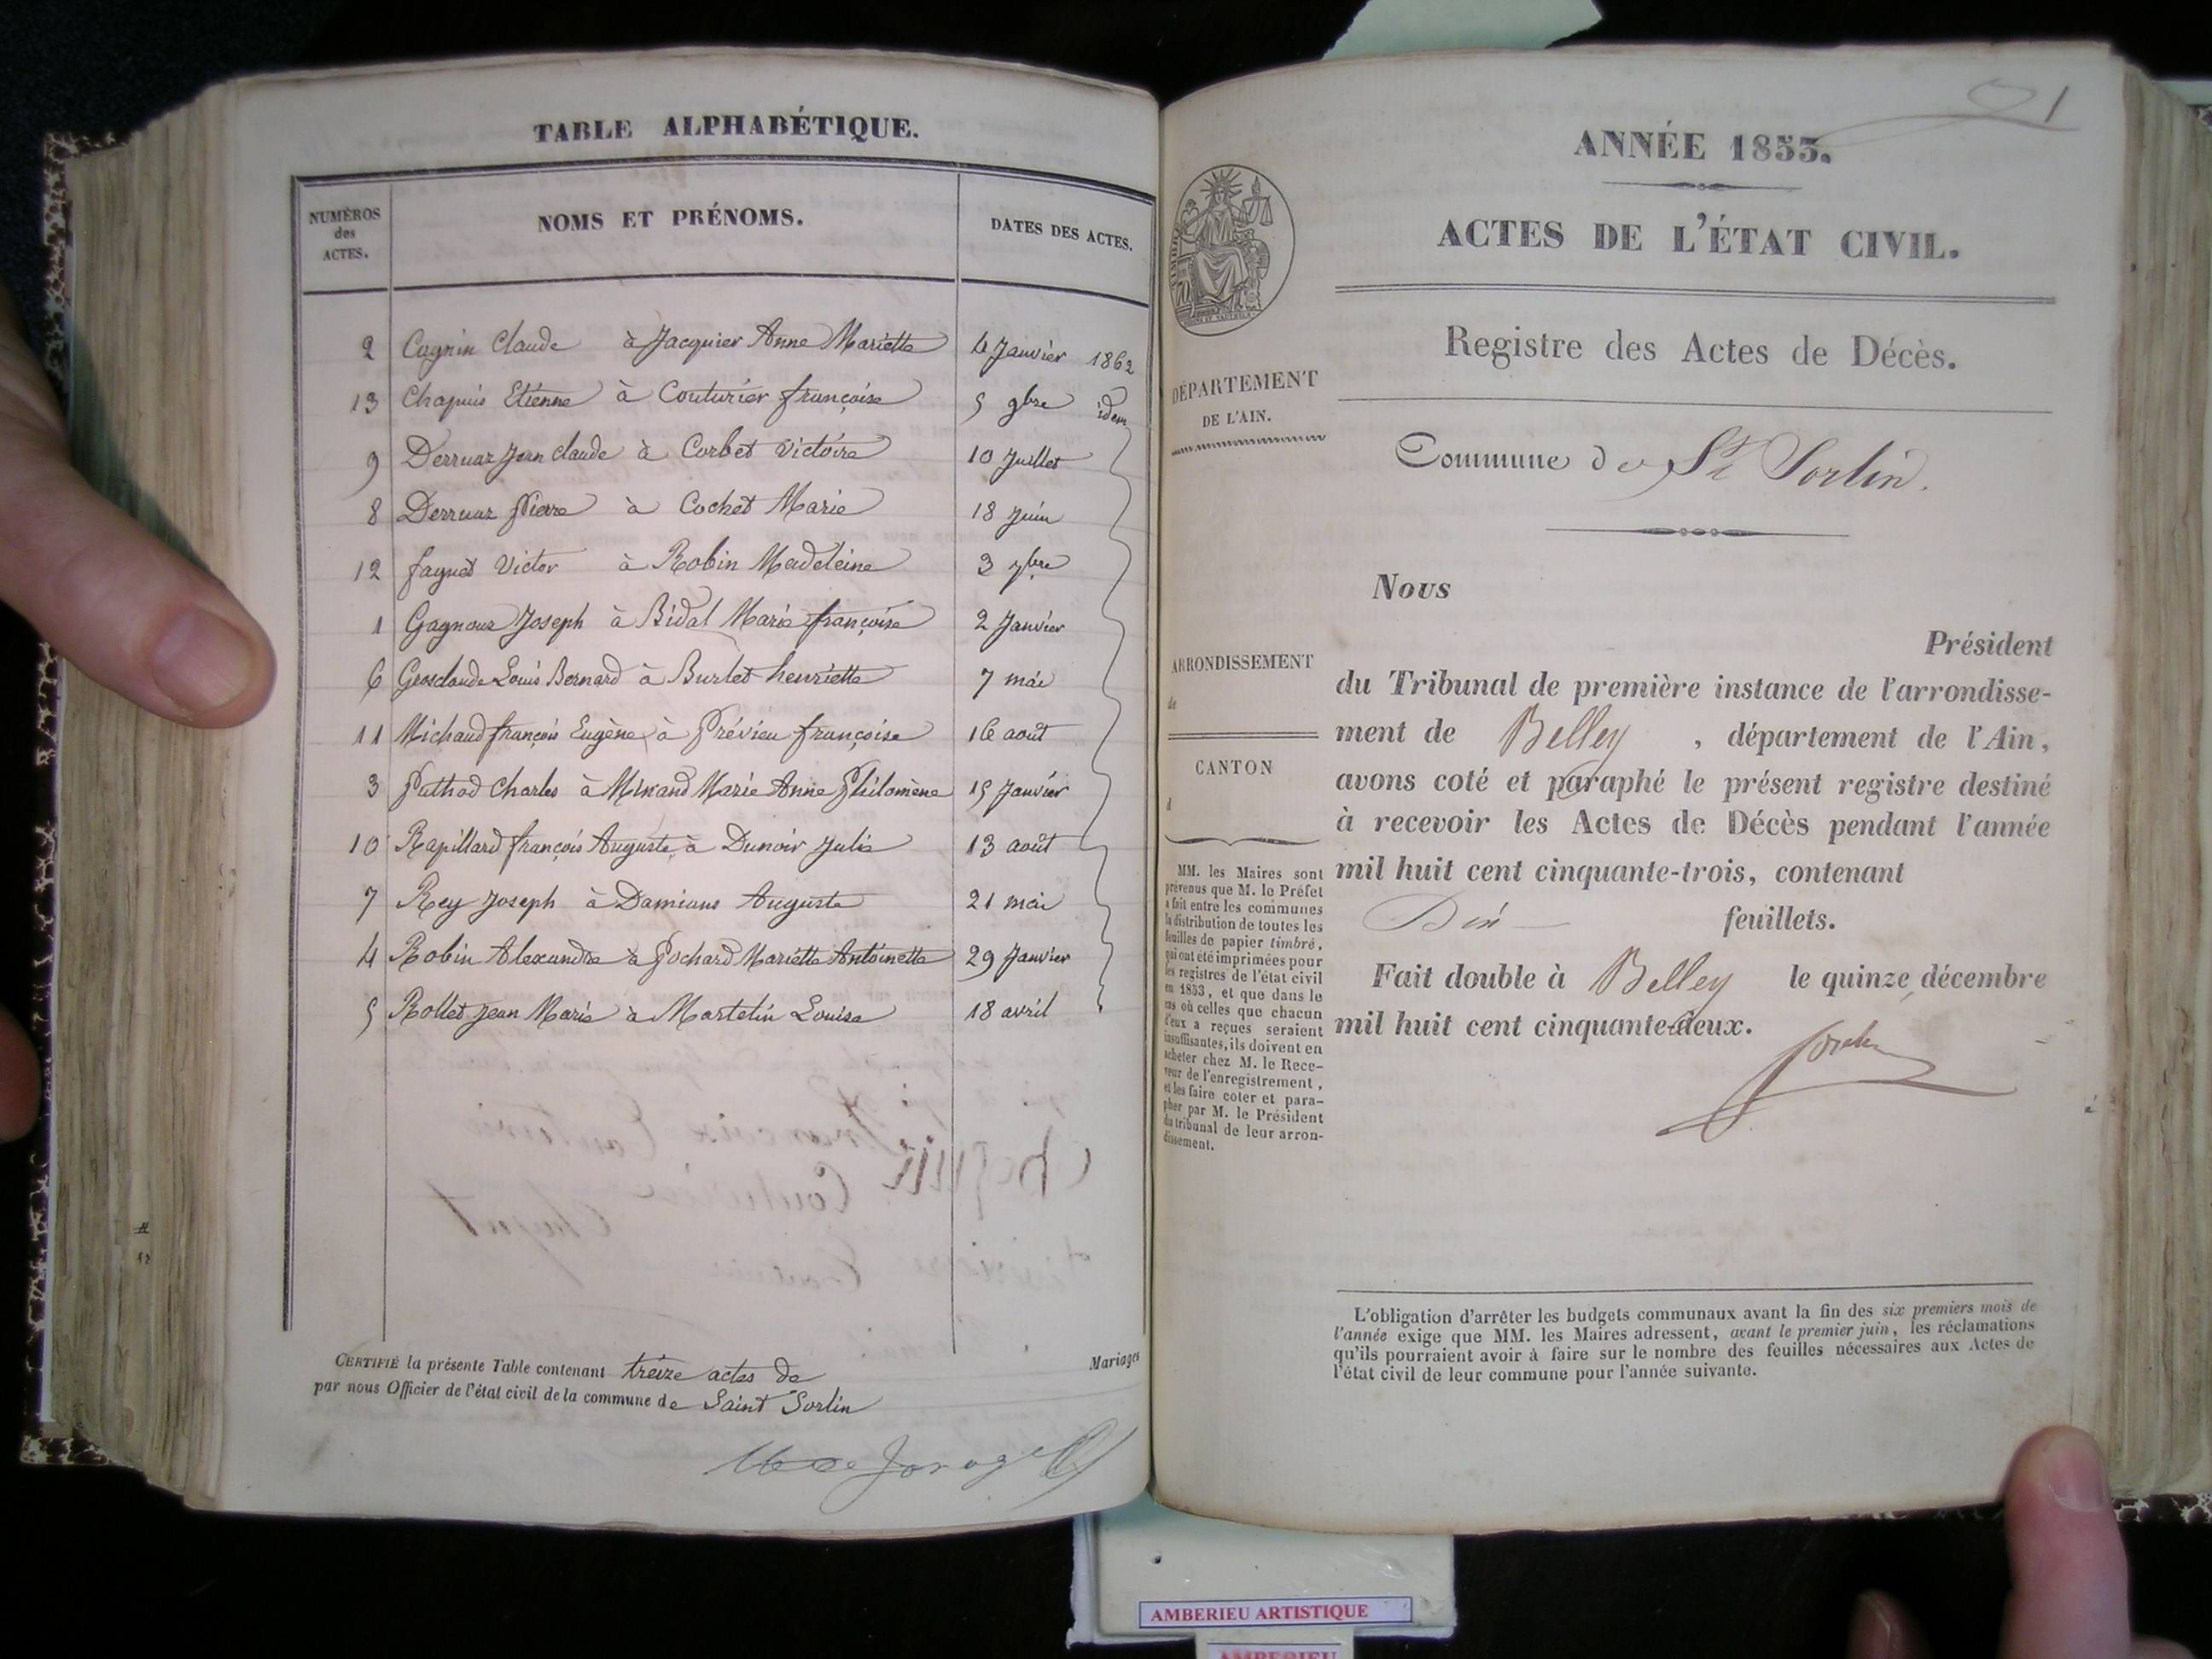 TABLE ALPHABÉTIQUE.
NUMÉROS des ACTES.
NOMS ET PRÉNOMS.
DATES DES ACTES.
2 Cagnin Claude à Jacquier Anne Mariette 4 Janvier 1862
13 Chapuis Etienne à Couturier françoise 5 9bre idem
9 Derruaz Jean Claude à Corbet Victoire 10 Juillet
8 Derruaz Pierre à Cochet Marie 18 Juin
12 faguet Victor à Robin Madeleine 3 7bre
1 Gagneux Joseph à Bidal Marie françoise 2 Janvier
6 Grosclaude Louis Bernard à Burlet henriette 7 mai
11 Michaud françois Eugène à Prévieu françoise 16 août
3 Puthod Charles à Minand Marie Anne Philomène 15 Janvier
10 Rapillard françois Auguste à Dunoir Julie 13 août
7 Rey Joseph à Damians Augusta 21 mai
4 Robin Alexandre à Pochard Mariette Antoinette 29 Janvier
5 Rollet Jean Marie à Martelin Louise 18 avril
CERTIFIÉ la présente Table contenant treize actes de Mariages
par nous Officier de l'état civil de la commune de Saint Sorlin
1
ANNÉE 1853.
ACTES DE L'ÉTAT CIVIL.
Registre des Actes de Décès.
DÉPARTEMENT
DE L'AIN.
Commune de St Sorlin.
Nous
Président
ARRONDISSEMENT
de
du Tribunal de première instance de l'arrondisse-
ment de Belley, département de l'Ain,
CANTON
d
avons coté et paraphé le présent registre destiné
à recevoir les Actes de Décès pendant l'année
mil huit cent cinquante-trois, contenant
Dix feuillets.
Fait double à Belley le quinze décembre
mil huit cent cinquante-deux.
MM. les Maires sont
prévenus que M. le Préfet
a fait entre les communes
la distribution de toutes les
feuilles de papier timbré,
qui ont été imprimées pour
les registres de l'état civil
en 1853, et que dans le
cas où celles que chacun
d'eux a reçues seraient
insuffisantes, ils doivent en
acheter chez M. le Rece-
veur de l'enregistrement,
et les faire coter et para-
pher par M. le Président
du tribunal de leur arron-
dissement.
L'obligation d'arrêter les budgets communaux avant la fin des six premiers mois de
l'année exige que MM. les Maires adressent, avant le premier juin, les réclamations
qu'ils pourraient avoir à faire sur le nombre des feuilles nécessaires aux Actes de
l'état civil de leur commune pour l'année suivante.
AMBERIEU ARTISTIQUE
AMBERIEU